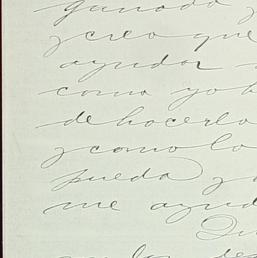 ganado y
y creo que
ayudar
como yo h
de hacerlo
y como lo
pueda y
me ayud